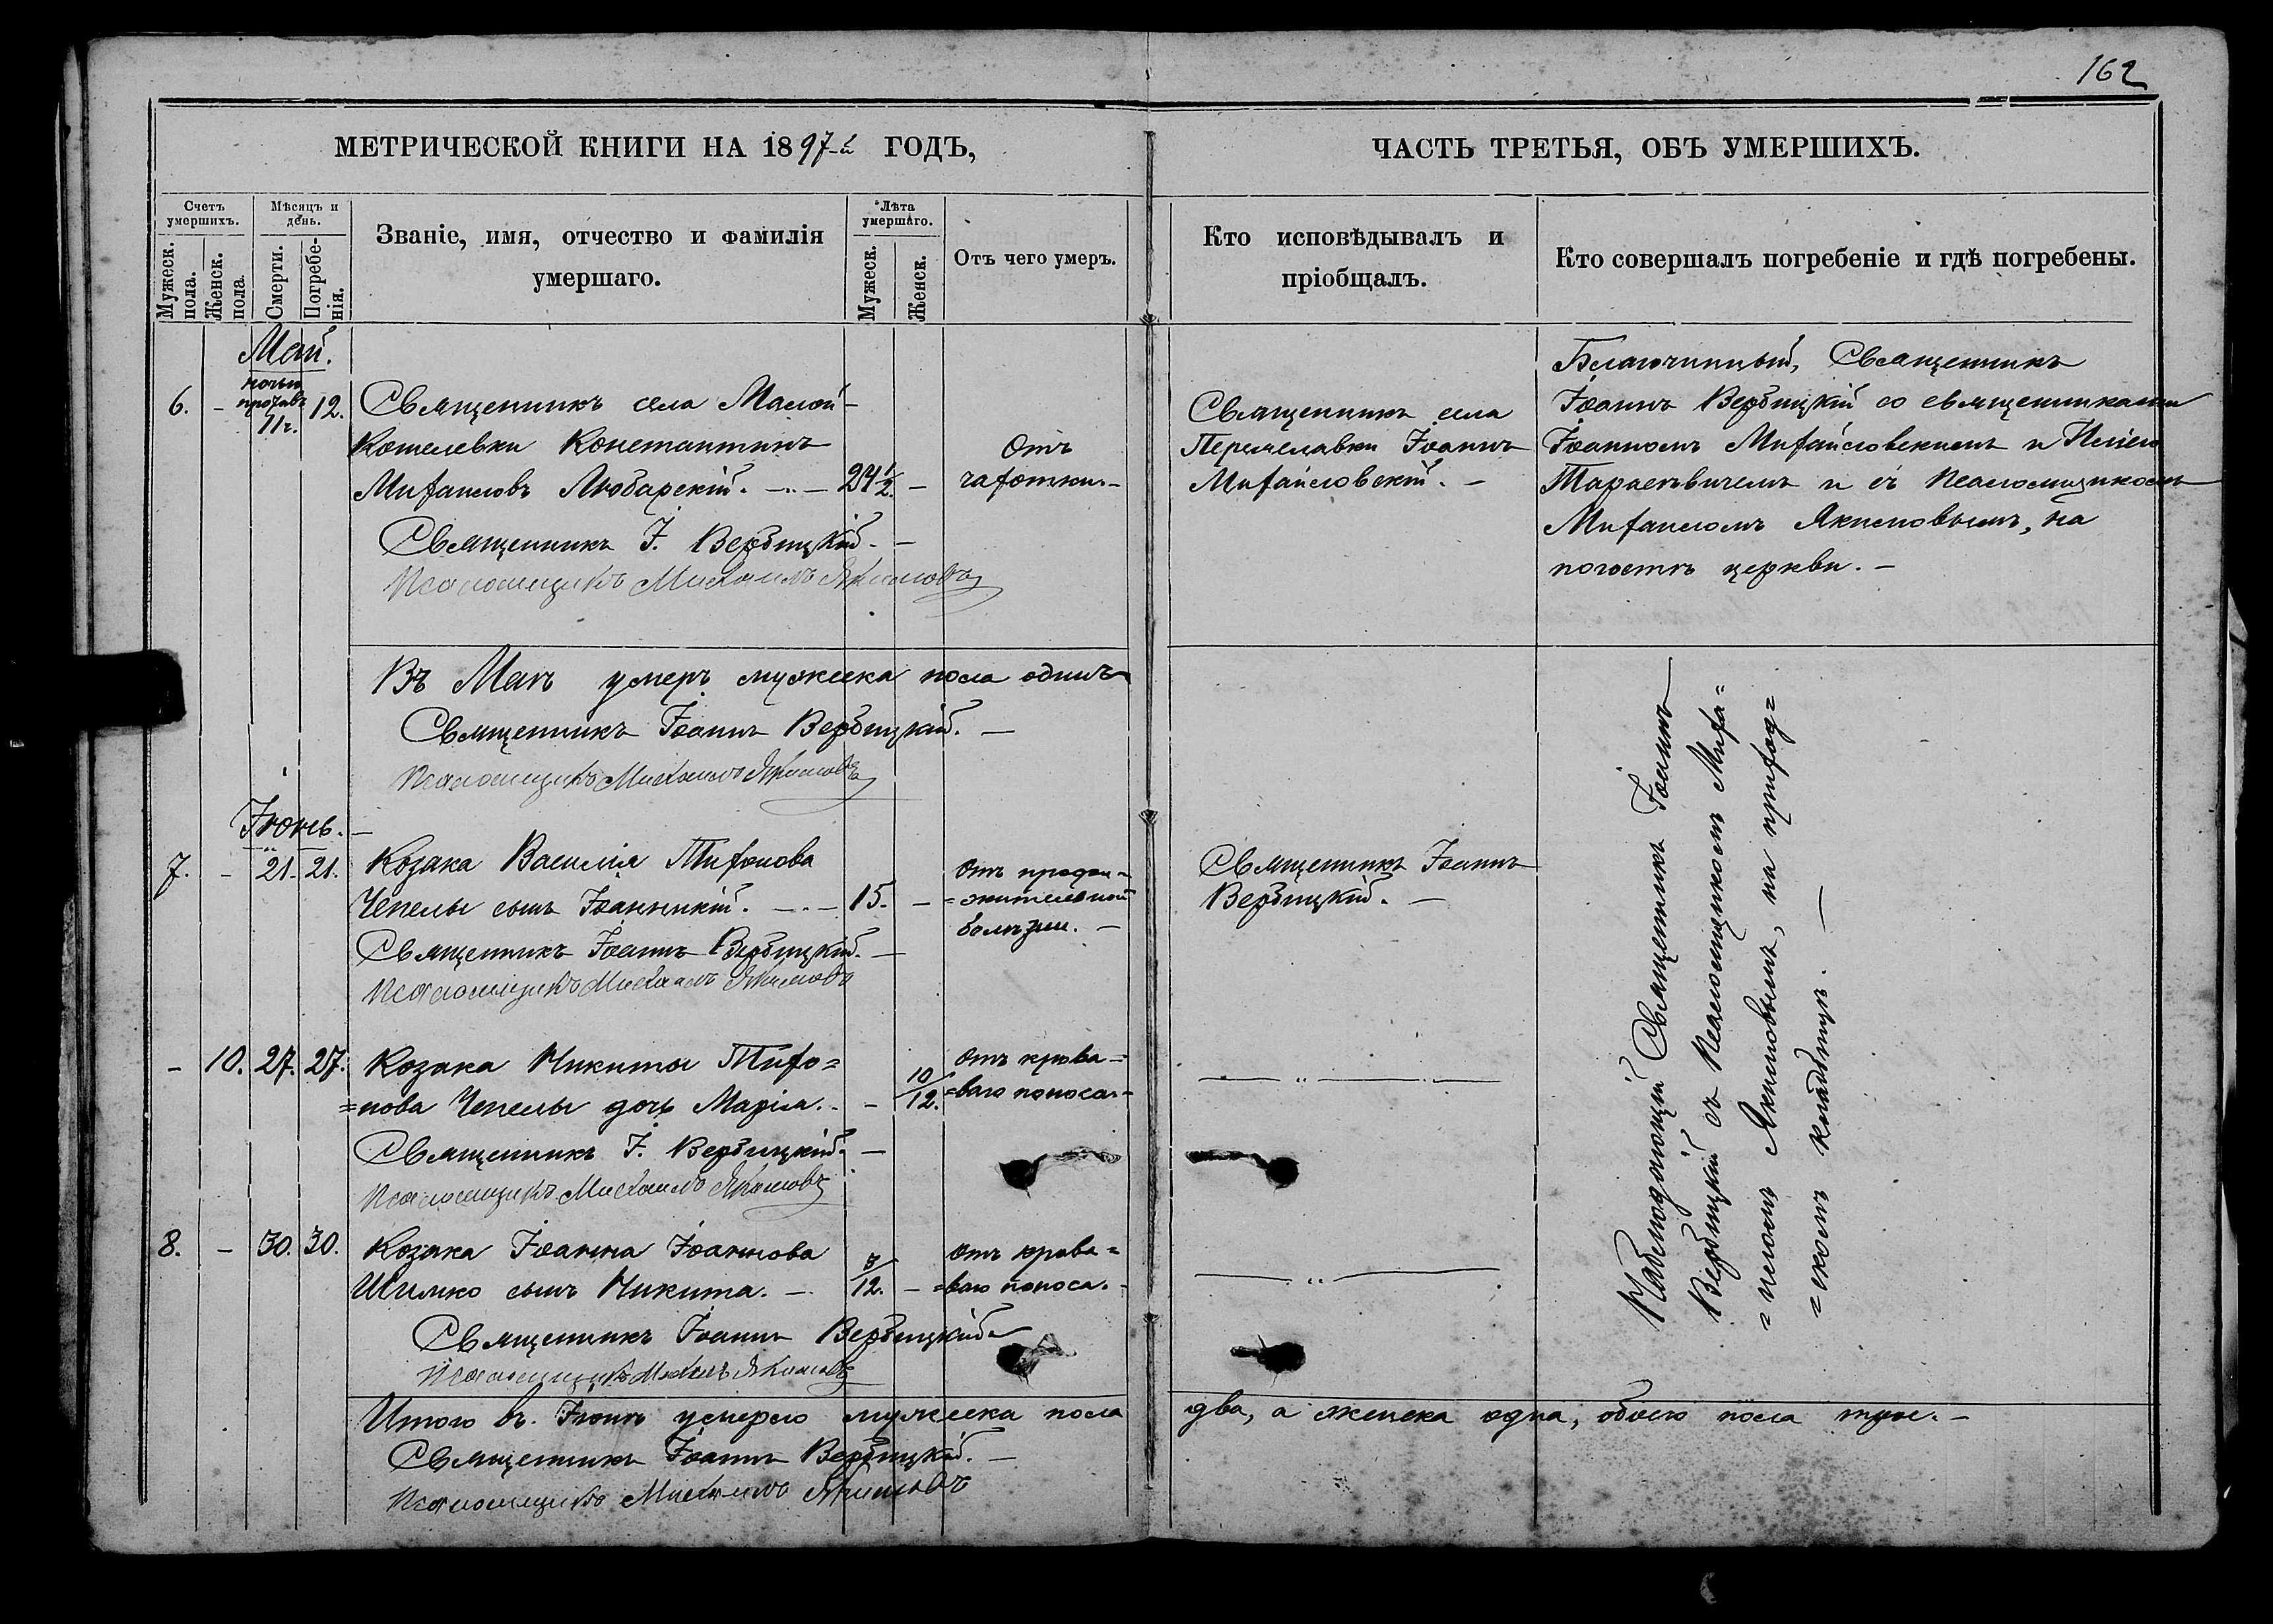 162
МЕТРИЧЕСКОЙ КНИГИ НА 1897-й ГОДЪ,
ЧАСТЬ ТРЕТЬЯ, ОБЪ УМЕРШИХЪ.
Счетъ умершихъ.
Мужеск. пола.
Женск. пола.
Мѣсяцъ и день.
Смерти.
Погребенія.
Званіе, имя, отчество и фамилія
умершаго.
Лѣта умершаго.
Мужеск.
Женск.
Отъ чего умеръ.
Кто исповѣдывалъ и
пріобщалъ.
Кто совершалъ погребеніе и гдѣ погребены.
Май.
6. - ночью противъ 11г. 12.
Священникъ села Малой-
Кошелевки Константинъ
Михаиловъ Любарскій. - 24 1/2. -
Отъ
чахотки-
Священникъ села
Переяславки Іоаннъ
Михайловскій. -
Благочинный, Священникъ
Іоаннъ Вербицкій со священниками
Іоанномъ Михайловскимъ и
Тарасевичемъ и съ Псаломщикомъ
Михаиломъ Якимовымъ, на
погостѣ церкви. -
Священникъ І. Вербицкій. -
Псаломщикъ Михаилъ Якимовъ
Въ Маѣ умеръ мужеска пола одинъ
Священникъ Іоаннъ Вербицкій. -
Псаломщикъ Михаилъ Якимовъ
Іюнь. -
7. - 21. 21. Козака Василія Тихонова
Чепелы сынъ Іоанникій. - 15. -
Отъ продол-
=жительной
болѣзни. -
Священникъ Іоаннъ
Вербицкій. -
Священникъ Іоаннъ Вербицкій. -
Псаломщикъ Михаилъ Якимовъ
- 10. 27. 27. Козака Никиты Тихо=
=нова Чепелы дочь Марія. - - 10/12.
Отъ крова-
=ваго поноса. -
— „ —
Священникъ І. Вербицкій. -
Псаломщикъ Михаилъ Якимовъ
8. - 30. 30. Козака Іоанна Іоаннова
Шимко сынъ Никита. - 8/12. -
Отъ крова=
=ваго поноса. -
— „ —
Священникъ Іоаннъ Вербицкій
Псаломщикъ Михаилъ Якимовъ
Наблюдающій Священникъ Іоаннъ
Вербицкій съ Псаломщикомъ Миха=
=иломъ Якимовымъ, на приход=
=скомъ кладбищѣ. -
Итого въ Іюнѣ умерло мужеска пола два, а женска одна, обоего пола трое. -
Священникъ Іоаннъ Вербицкій. -
Псаломщикъ Михаилъ Якимовъ